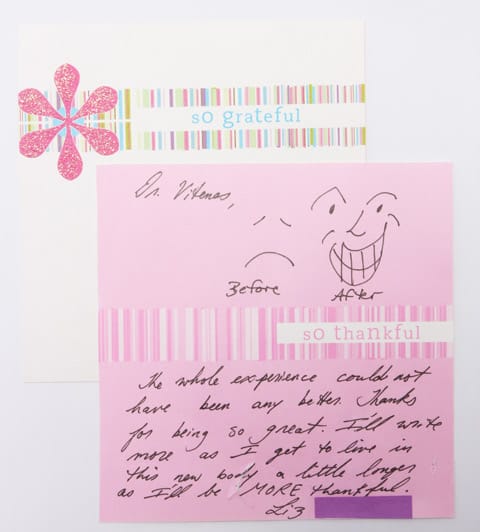 so grateful
Dr. Vitenas,
Before After
so thankful
The whole experience could not
have been any better. Thanks
for being so great. I'll write
more as I get to live in
this new body a little longer
as I'll be MORE thankful.
Liz